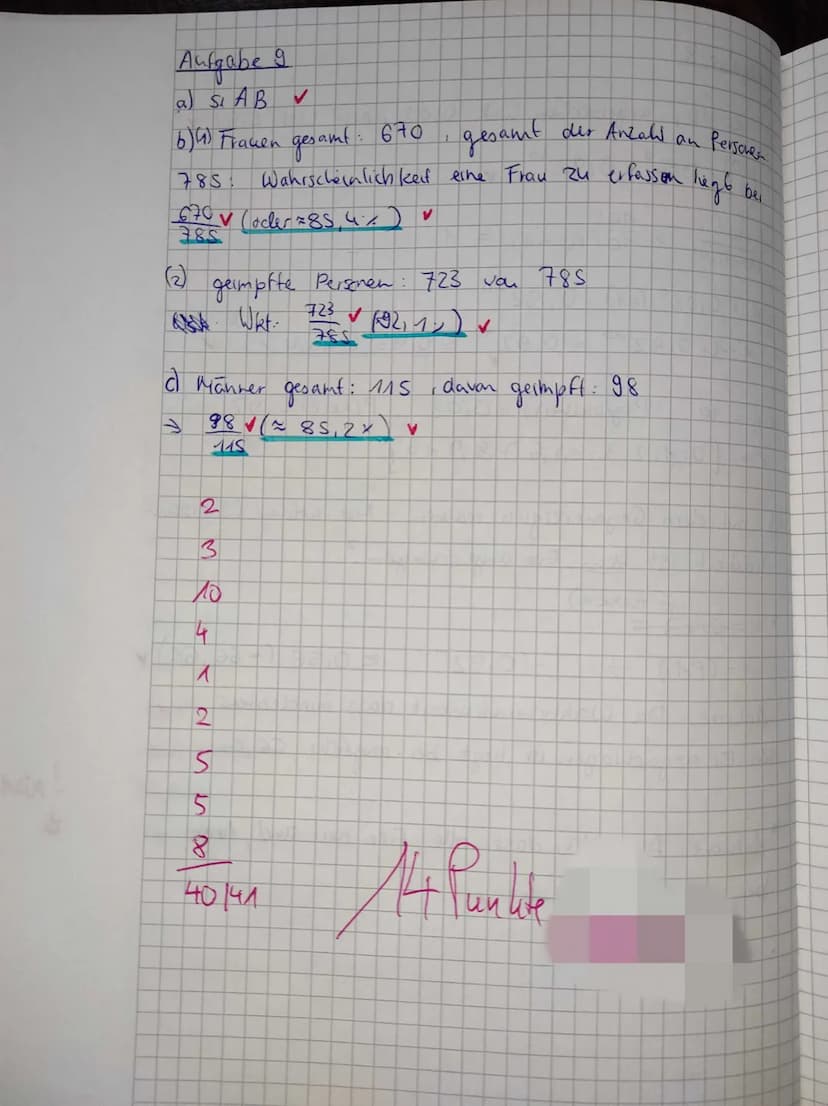 Aufgabe 9
a) s. AB ✓
b)(1) Frauen gesamt: 670, gesamt der Anzahl an Personen
785: Wahrscheinlichkeit eine Frau zu erfassen liegt bei
670/785 ✓ (oder ≈ 85,4%) ✓
(2) geimpfte Personen: 723 von 785
Wkt. 723/785 ✓ (≈92,1%) ✓
c) Männer gesamt: 115, davon geimpft: 98
→ 98/115 ✓ (≈ 85,2%) ✓
2
3
10
4
1
2
5
5
8
40/41
14 Punkte